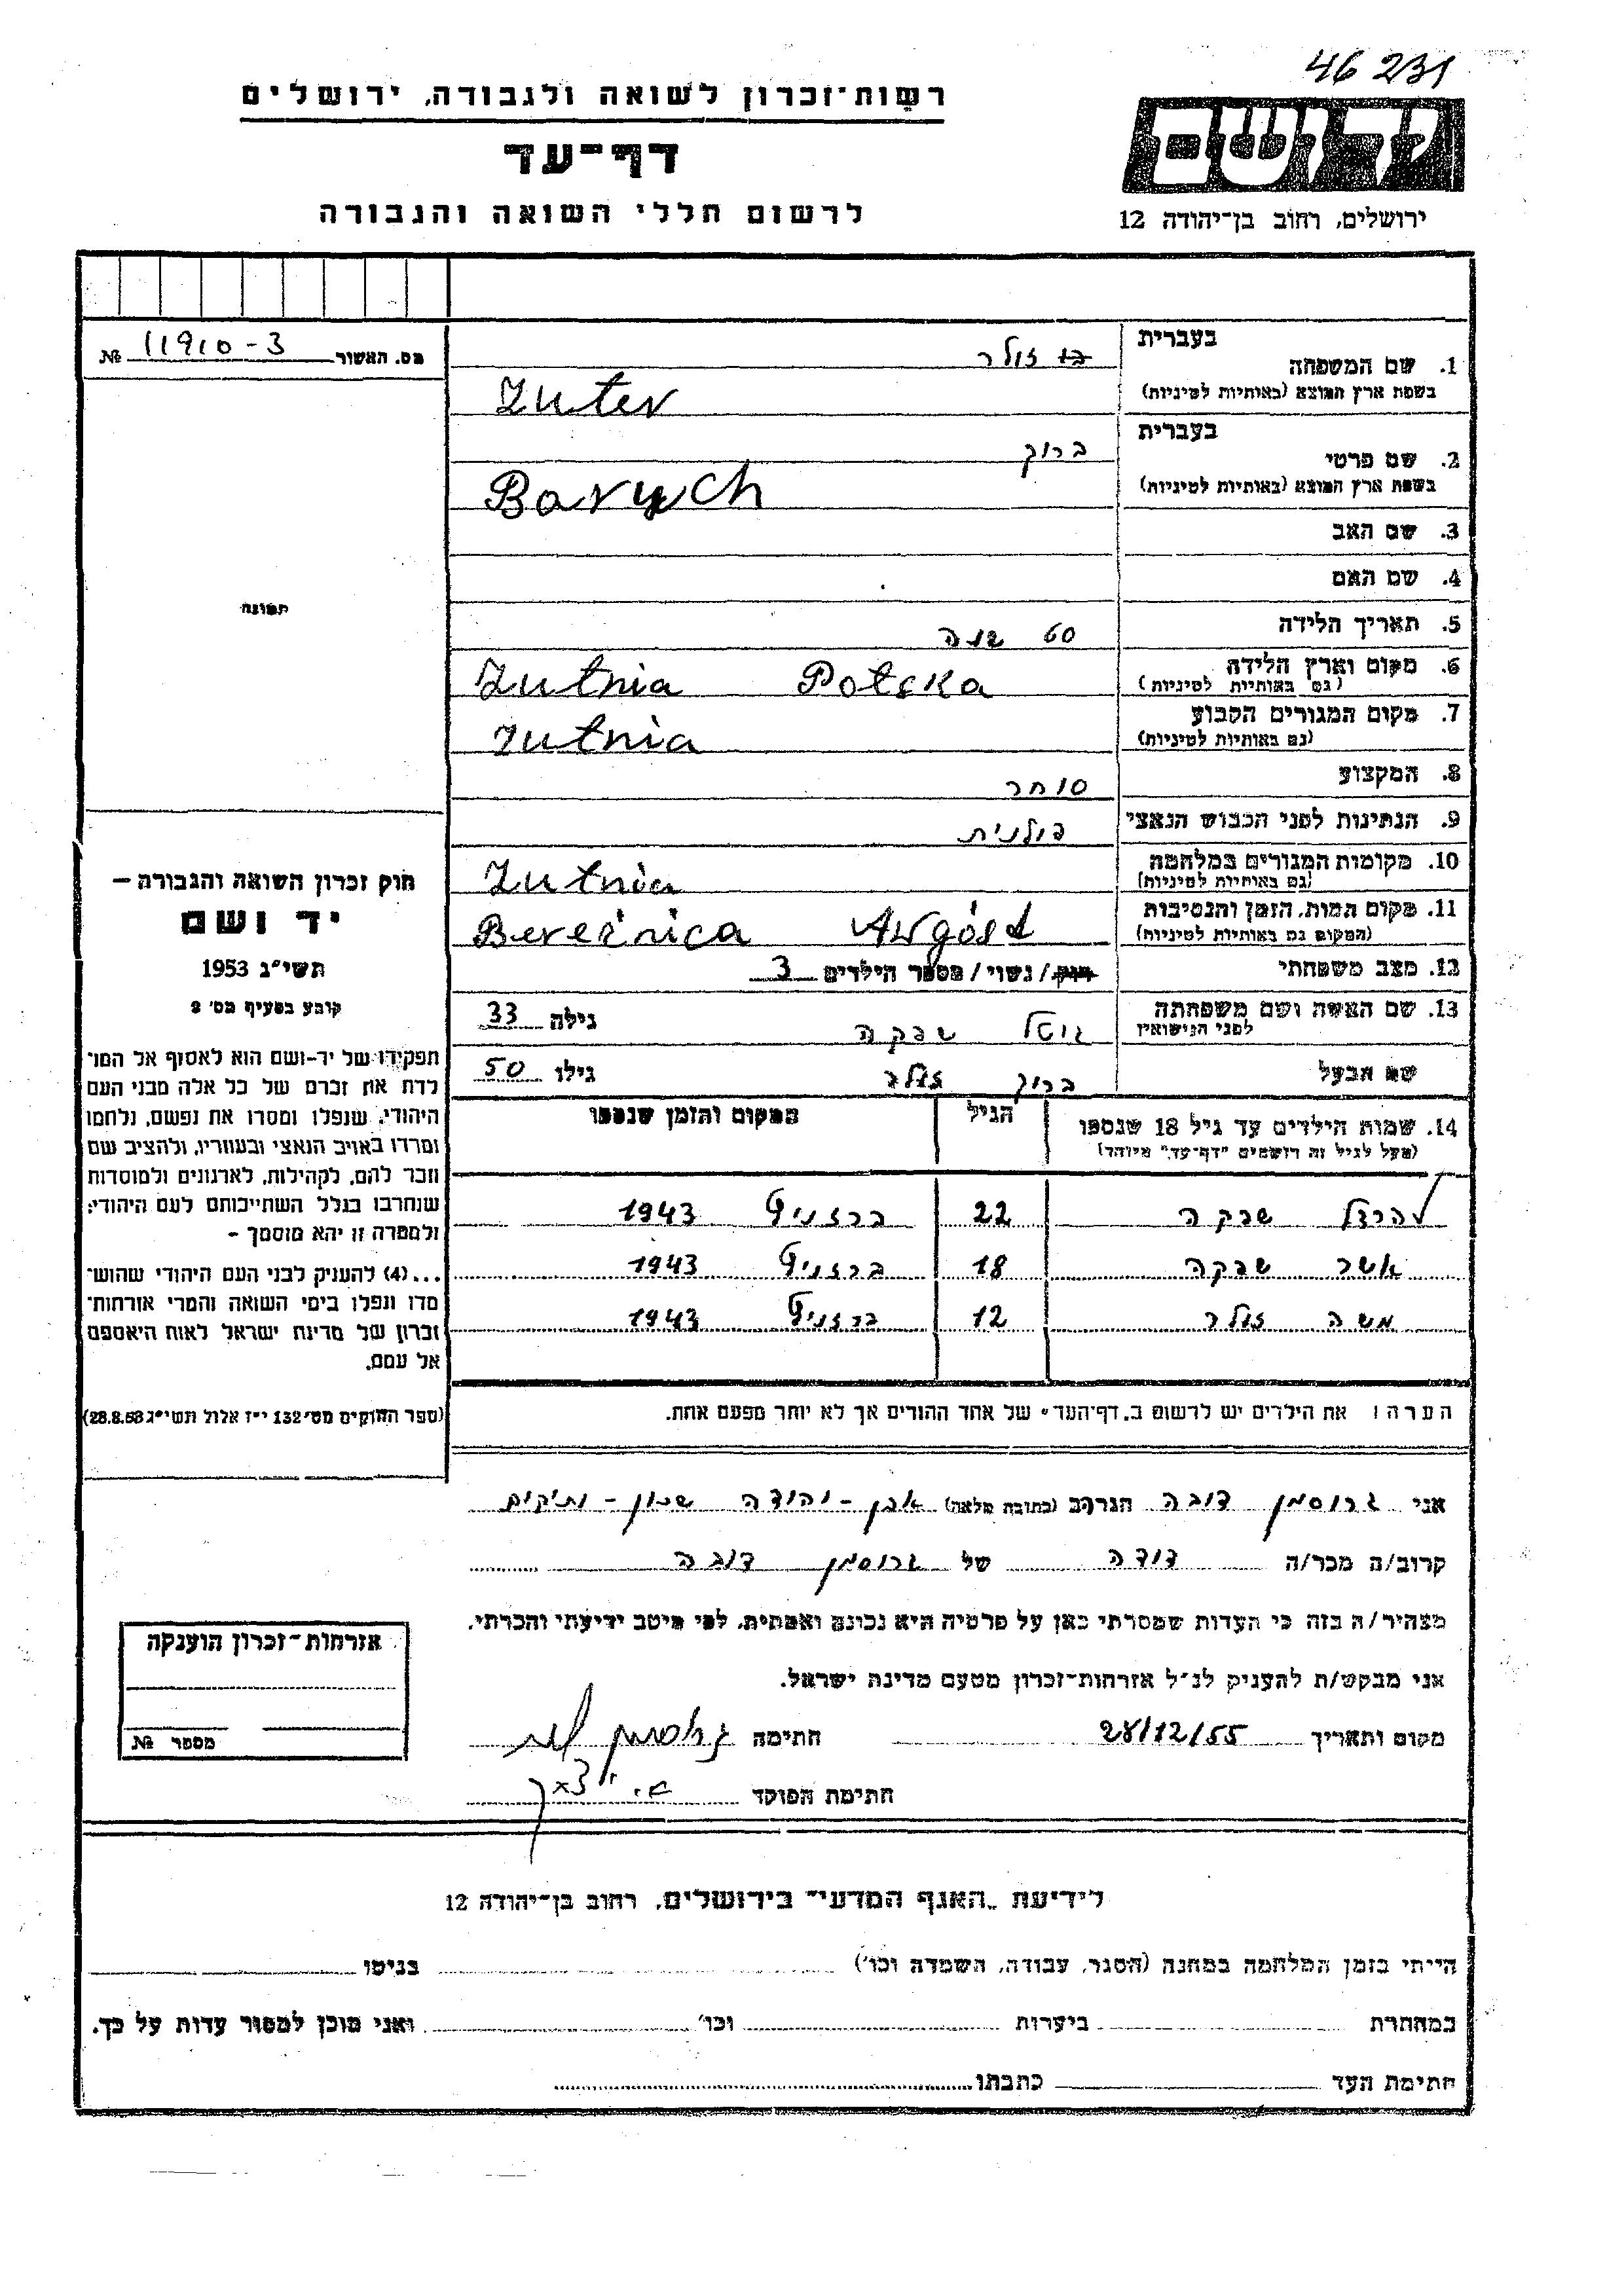 46231
רשות־זכרון לשואה ולגבורה, ירושלים
דף־עד
לרשום חללי השואה והגבורה
יד ושם
ירושלים, רחוב בן־יהודה 12
מס. האשור 11910-3 №
בעברית
1. שם המשפחה
בשפת ארץ המוצא (באותיות לטיניות) Zuter
בעברית
2. שם פרטי ברוך
בשפת ארץ המוצא (באותיות לטיניות) Baruch
3. שם האב
4. שם האם
תמונה
5. תאריך הלידה 60 שנה
6. מקום וארץ הלידה Zutnia Polska
(גם באותיות לטיניות)
7. מקום המגורים הקבוע Zutnia
(גם באותיות לטיניות)
8. המקצוע סוחר
9. הנתינות לפני הכבוש הנאצי פולנית
10. מקומות המגורים במלחמה Zutnia
(גם באותיות לטיניות)
11. מקום המות, הזמן והנסיבות Bereźnica
(המקום גם באותיות לטיניות)
12. מצב משפחתי רווק / נשוי / מספר הילדים 3
13. שם האשה ושם משפחתה גיטל שבקה גילה 33
לפני הנישואין
שם הבעל ברוך גילו 50
14. שמות הילדים עד גיל 18 שנספו הגיל המקום והזמן שנספו
(מעל לגיל זה רושמים "דף־עד" מיוחד)
שבקה 22 ברזניץ 1943
אשר שבקה 18 ברזניץ 1943
משה 12 ברזניץ 1943
הערה: את הילדים יש לרשום ב„דף־העד" של אחד ההורים אך לא יותר מפעם אחת.
חוק זכרון השואה והגבורה –
יד ושם
תשי"ג 1953
קובע בסעיף מס' 2
תפקידו של יד-ושם הוא לאסוף אל המו־
לדת את זכרם של כל אלה מבני העם
היהודי, שנפלו ומסרו את נפשם, נלחמו
ומרדו באויב הנאצי ובעוזריו, ולהציב שם
וזכר להם, לקהילות, לארגונים ולמוסדות
שנחרבו בגלל השתייכותם לעם היהודי;
ולמטרה זו יהא מוסמך –
...(4) להעניק לבני העם היהודי שהוש־
מדו ונפלו בימי השואה והמרי אזרחות־
זכרון של מדינת ישראל לאות היאספם
אל עמם.
(ספר החוקים מס' 132 י"ז אלול תשי"ג 28.8.53)
אני גרוסמן דובה הגר/ב (כתובת מלאה) אבן-יהודה שכון-ותיקים
קרוב/ה מכר/ה דודה של גרוסמן דובה
מצהיר/ה בזה כי העדות שמסרתי כאן על פרטיה היא נכונה ואמתית, לפי מיטב ידיעתי והכרתי.
אני מבקש/ת להעניק לנ"ל אזרחות־זכרון מטעם מדינת ישראל.
מקום ותאריך 28/12/55 חתימה
חתימת הפוקד
אזרחות־זכרון הוענקה
מספר №
לידיעת „האגף המדעי" בירושלים, רחוב בן־יהודה 12
הייתי בזמן המלחמה במחנה (הסגר, עבודה, השמדה וכו') בגיטו
במחתרת ביערות וכו' ואני מוכן למסור עדות על כך.
חתימת העד כתבתו